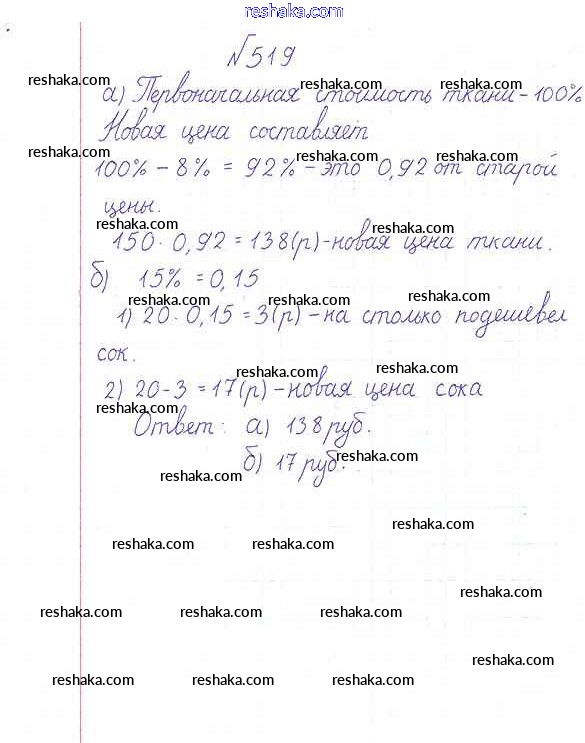 reshaka.com
№519
reshaka.com
а) Первоначальная стоимость ткани - 100%
reshaka.com reshaka.com
Новая цена составляет
reshaka.com reshaka.com reshaka.com
100% - 8% = 92% - это 0,92 от старой
цены.
reshaka.com reshaka.com
150 · 0,92 = 138(р) - новая цена ткани.
б) 15% = 0,15
reshaka.com reshaka.com reshaka.com
1) 20 · 0,15 = 3(р) - на столько подешевел
сок.
reshaka.com reshaka.com
2) 20 - 3 = 17(р) - новая цена сока
reshaka.com
Ответ: а) 138 руб.
б) 17 руб.
reshaka.com
reshaka.com
reshaka.com
reshaka.com reshaka.com
reshaka.com
reshaka.com reshaka.com reshaka.com
reshaka.com
reshaka.com reshaka.com reshaka.com